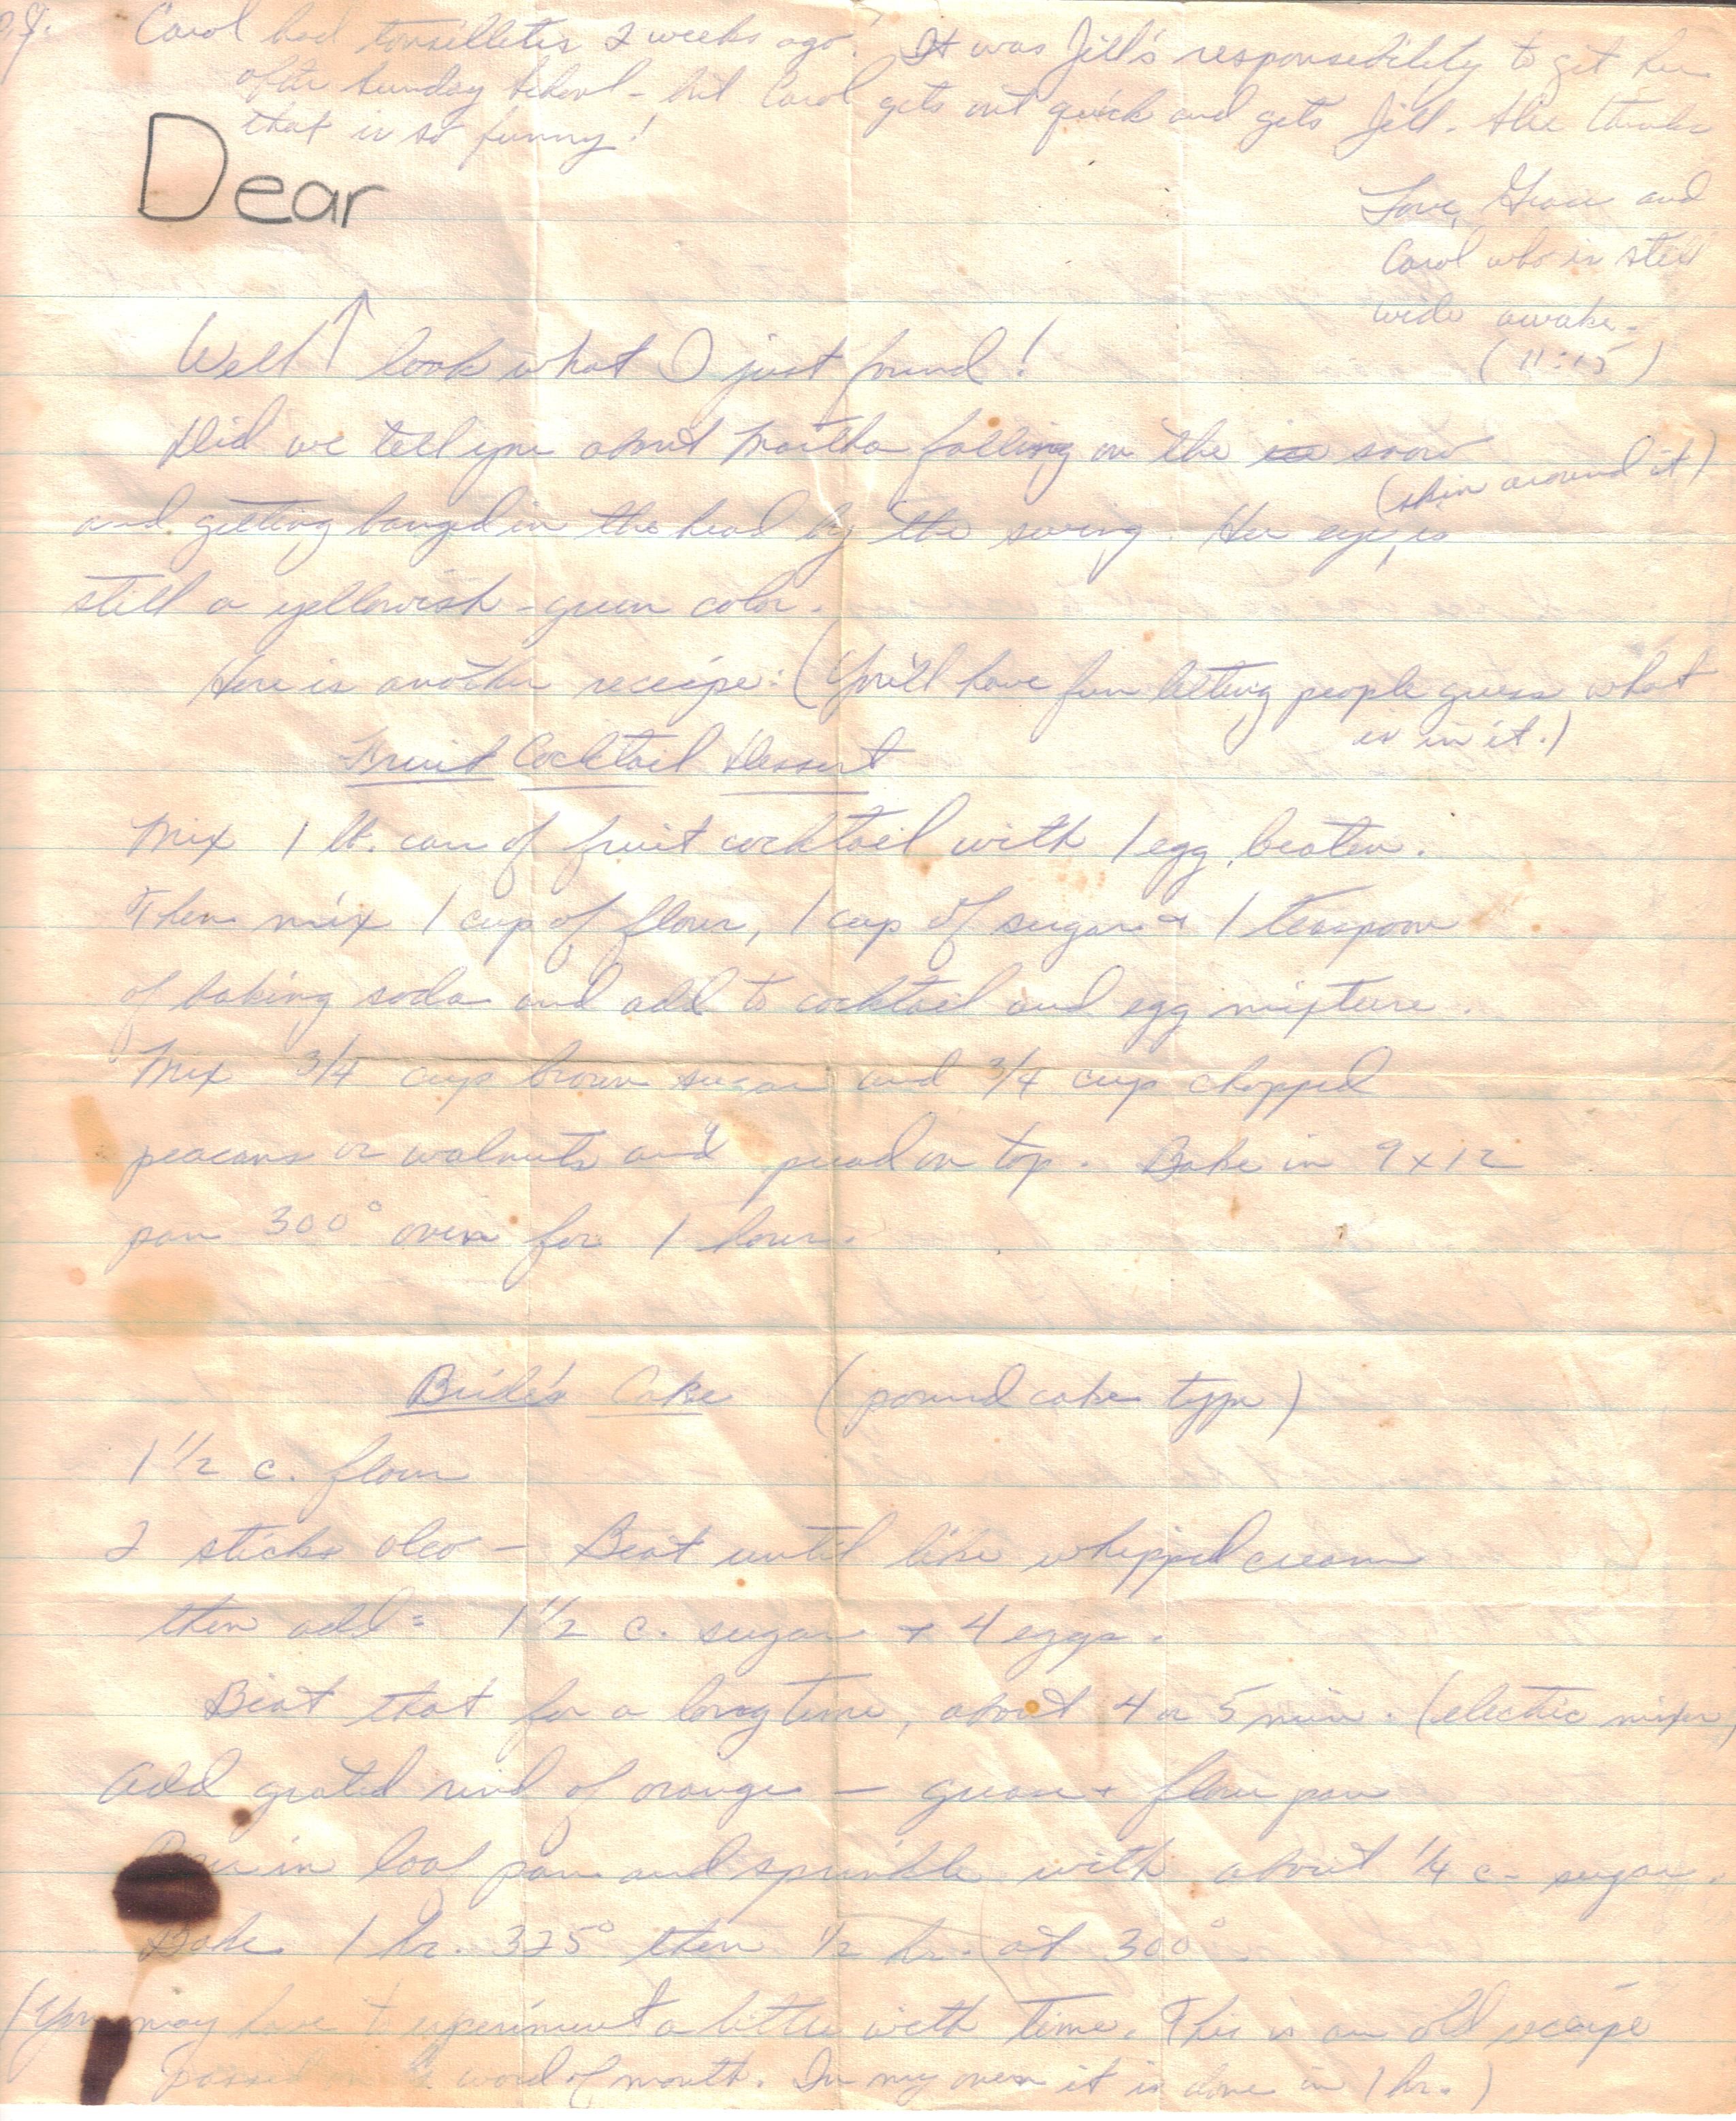 P.S. Carol had tonsilletis 2 weeks ago. It was Jill's responsedility to get her
after Sunday School - but Carol gets out quick and gets Jill. She thinks
that is so funny!
Dear
Love, Grace and
Carol who is still
wide awake.
(11:15)
Well ↑ look what I just found!
Did we tell you about Martha falling on the ice snow
and getting banged in the head by the swing. Her eye, is
(skin around it)
still a yellowish-green color.
Here is another receipe: (You'll have fun letting people guess what
is in it.)
Fruit Cocktail Dessert
Mix 1 lb. can of fruit cocktail with 1 egg, beaten.
Then mix 1 cup of flour, 1 cup of sugar + 1 teaspoon
of baking soda and add to cocktail and egg mixture.
Mix 3/4 cup brown sugar and 3/4 cup chopped
peacans or walnuts and on top. Bake in 9x12
pan 300° oven for 1 hour.
Bride's Cake (pound cake type)
1 1/2 c. flour
2 sticks oleo - Beat until like whipped cream
then add = 1 1/2 c. sugar + 4 eggs.
Beat that for a long time, about 4 or 5 min. (electric mixer)
Add grated rind of orange — grease + flour pan
in loaf pan and sprinkle with about 1/4 c- sugar.
Bake 1 hr. 325° then 1/2 hr. at 300°.
(You may have to experiment a little with time. This is an old receipe
passed on by word of mouth. In my oven it is done in 1 hr.)